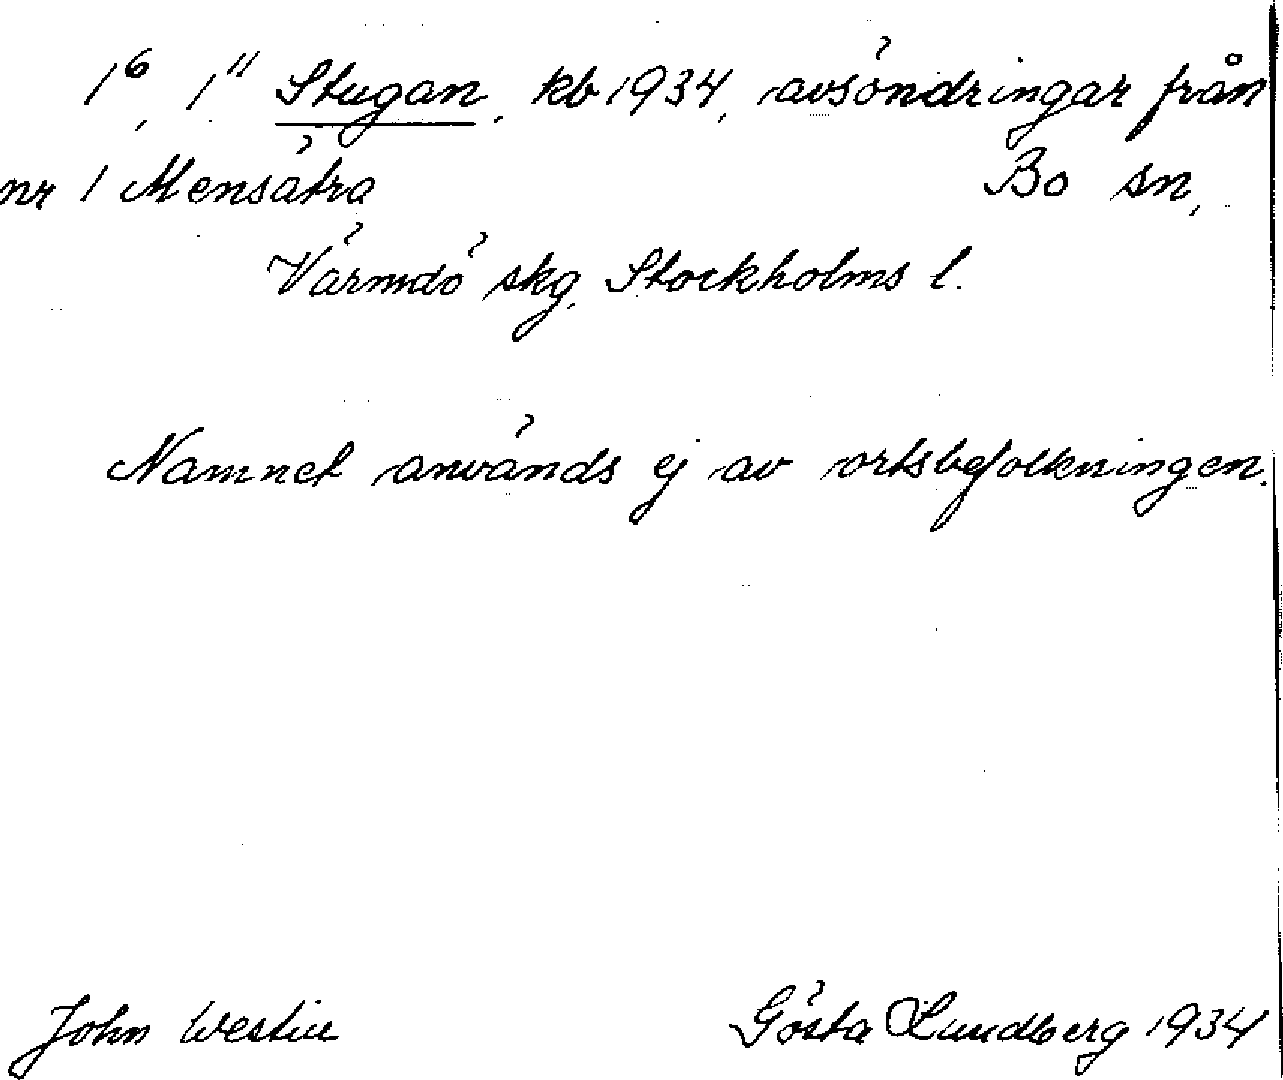 1⁶, 1¹¹ Stugan, kb 1934, avsöndringar från
nr 1 Mensätra Bo sn,
Värmdö skg, Stockholms l.
Namnet används ej av ortsbefolkningen.
John Westin Gösta Lundberg 1934